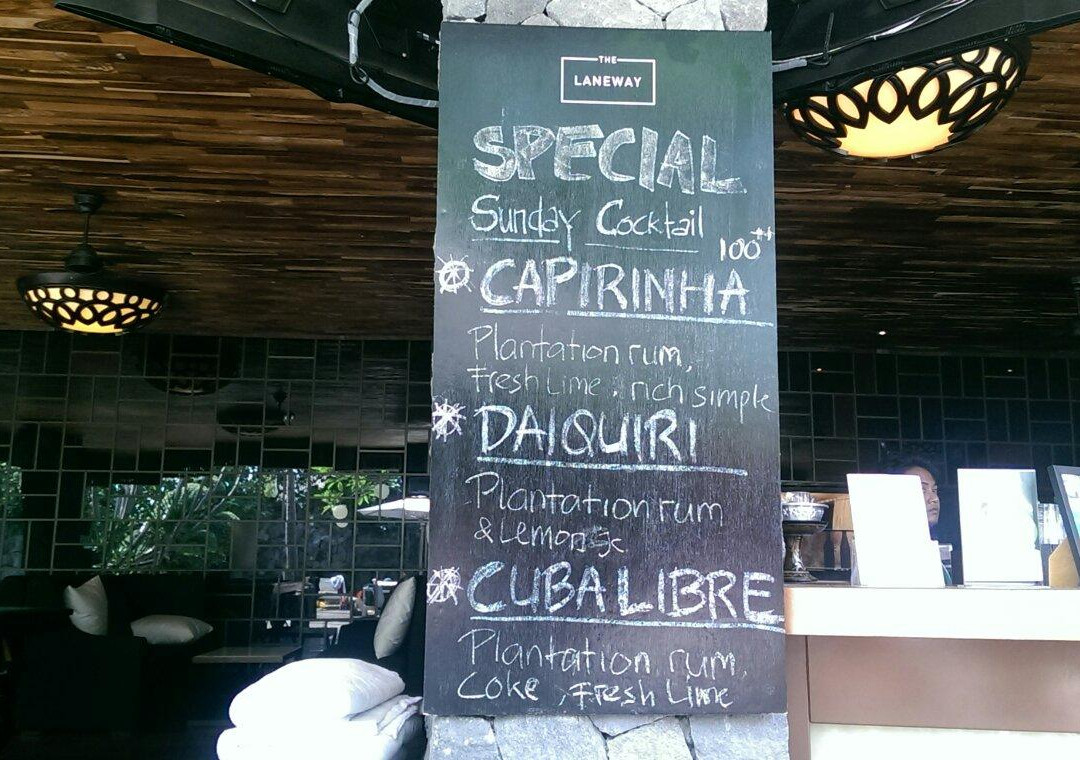 THE
LANEWAY
SPECIAL
Sunday Cocktail
100++
CAPIRINHA
Plantation rum,
Fresh Lime, rich simple
DAIQUIRI
Plantation rum
& Lemon
CUBA LIBRE
Plantation rum,
Coke, Fresh Lime